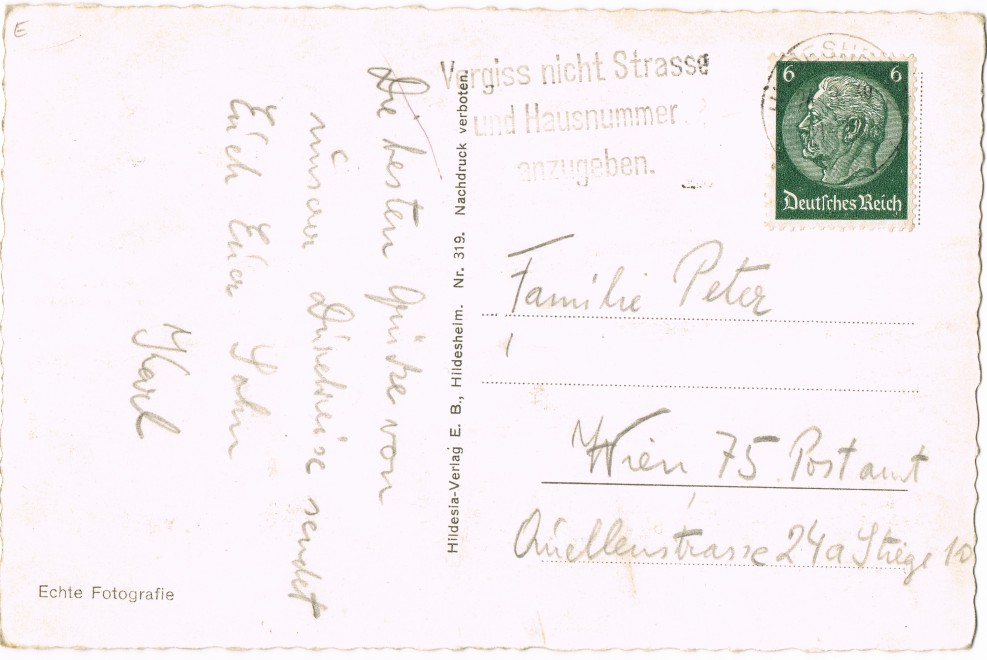 E
Vergiss nicht Strasse
und Hausnummer
anzugeben.
6 6
Deutsches Reich
Die besten Grüsse von
unserer Durchreise sendet
Euch Euer Sohn
Karl
Hildesia-Verlag E. B., Hildesheim. Nr. 319. Nachdruck verboten.
Familie Peter
Wien 75. Postamt
Quellenstrasse 24a Stiege 10
Echte Fotografie